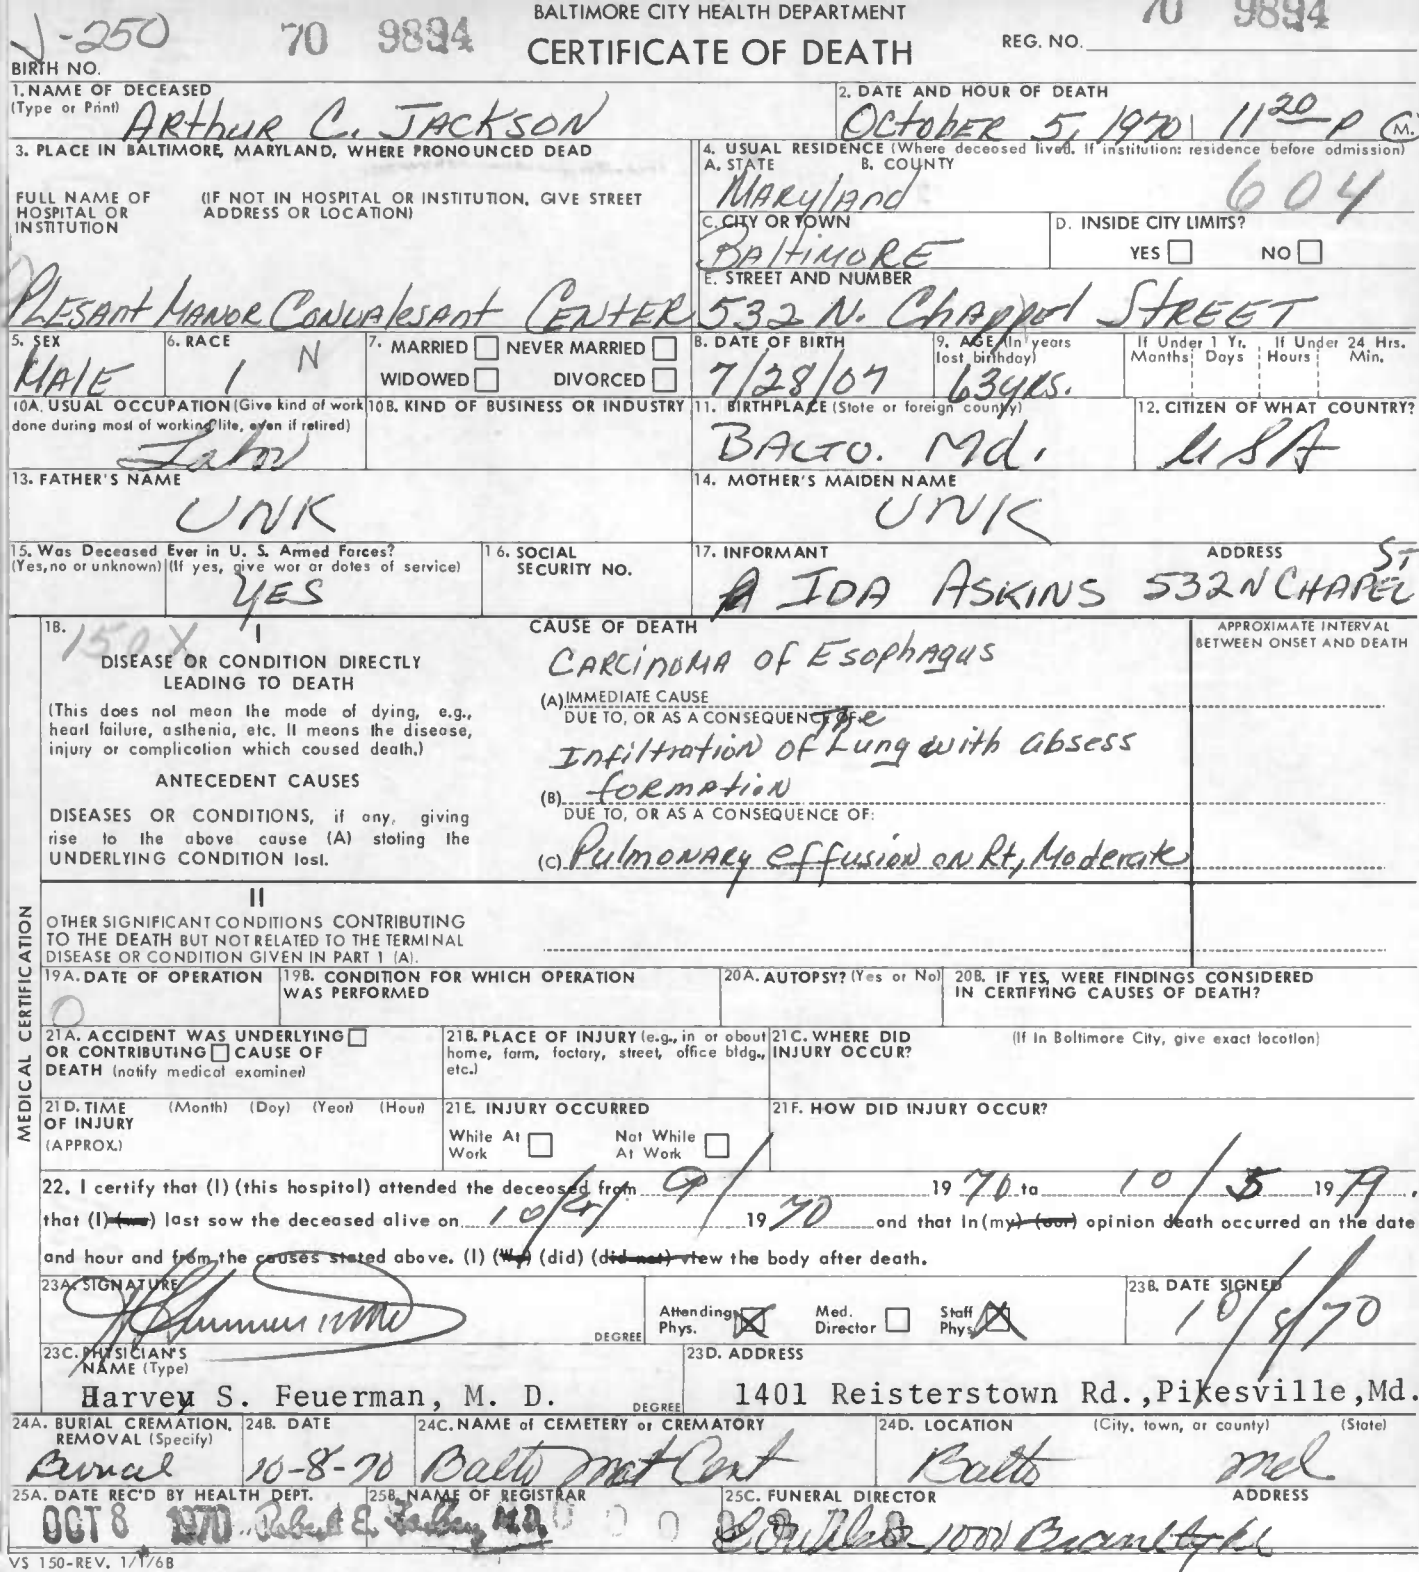 BALTIMORE CITY HEALTH DEPARTMENT
J-250 70 9894 CERTIFICATE OF DEATH REG. NO. 70 9894
BIRTH NO.
1. NAME OF DECEASED
(Type or Print) Arthur C. JACKSON
2. DATE AND HOUR OF DEATH
OCtobER 5, 1970 11 20 P M.
3. PLACE IN BALTIMORE, MARYLAND, WHERE PRONOUNCED DEAD
FULL NAME OF HOSPITAL OR INSTITUTION
(IF NOT IN HOSPITAL OR INSTITUTION, GIVE STREET ADDRESS OR LOCATION)
PLESAnt MANOR CONVAlesAnt CENTER
4. USUAL RESIDENCE (Where deceased lived. If institution: residence before admission)
A. STATE B. COUNTY
MARylAnd 604
C. CITY OR TOWN
BAltiMORE
D. INSIDE CITY LIMITS?
YES NO
E. STREET AND NUMBER
532 N. Chappel STREET
5. SEX
MAlE
6. RACE
1 N
7. MARRIED NEVER MARRIED
WIDOWED DIVORCED
8. DATE OF BIRTH
7/28/07
9. AGE (In years last birthday)
63 yrs.
If Under 1 Yr. Months Days
If Under 24 Hrs. Hours Min.
10A. USUAL OCCUPATION (Give kind of work done during most of working life, even if retired)
Labor
10B. KIND OF BUSINESS OR INDUSTRY
11. BIRTHPLACE (State or foreign country)
BALTO. Md.
12. CITIZEN OF WHAT COUNTRY?
USA
13. FATHER'S NAME
UNK
14. MOTHER'S MAIDEN NAME
UNK
15. Was Deceased Ever in U. S. Armed Forces?
(Yes, no or unknown) (If yes, give war or dates of service)
YES
16. SOCIAL SECURITY NO.
17. INFORMANT ADDRESS
IDA ASKINS 532 N CHAPEL ST
18. 150X
I
DISEASE OR CONDITION DIRECTLY
LEADING TO DEATH
(This does not mean the mode of dying, e.g.,
heart failure, asthenia, etc. It means the disease,
injury or complication which caused death.)
ANTECEDENT CAUSES
DISEASES OR CONDITIONS, if any, giving
rise to the above cause (A) stating the
UNDERLYING CONDITION last.
CAUSE OF DEATH
CARCinoMA of Esophagus
(A) IMMEDIATE CAUSE
DUE TO, OR AS A CONSEQUENCE OF:
Infiltration of The Lung with absess
(B) formation
DUE TO, OR AS A CONSEQUENCE OF:
(C) Pulmonary effusion on Rt, Moderate
APPROXIMATE INTERVAL
BETWEEN ONSET AND DEATH
MEDICAL CERTIFICATION
II
OTHER SIGNIFICANT CONDITIONS CONTRIBUTING
TO THE DEATH BUT NOT RELATED TO THE TERMINAL
DISEASE OR CONDITION GIVEN IN PART 1 (A).
19A. DATE OF OPERATION
0
19B. CONDITION FOR WHICH OPERATION
WAS PERFORMED
20A. AUTOPSY? (Yes or No)
20B. IF YES, WERE FINDINGS CONSIDERED
IN CERTIFYING CAUSES OF DEATH?
21A. ACCIDENT WAS UNDERLYING
OR CONTRIBUTING CAUSE OF
DEATH (notify medical examiner)
21B. PLACE OF INJURY (e.g., in or about
home, farm, factory, street, office bldg.,
etc.)
21C. WHERE DID
INJURY OCCUR?
(If in Baltimore City, give exact location)
21D. TIME (Month) (Day) (Year) (Hour)
OF INJURY
(APPROX.)
21E. INJURY OCCURRED
While At Work Not While At Work
21F. HOW DID INJURY OCCUR?
22. I certify that (I) (this hospital) attended the deceased from 9/ 1970 to 10/5 19
that (I) (we) last saw the deceased alive on 10/ 1970 and that in (my) (our) opinion death occurred on the date
and hour and from the causes stated above. (I) (We) (did) (did not) view the body after death.
23A. SIGNATURE
DEGREE
Attending Phys. Med. Director Staff Phys.
23B. DATE SIGNED
10/5/70
23C. PHYSICIAN'S
NAME (Type)
Harvey S. Feuerman, M. D. DEGREE
23D. ADDRESS
1401 Reisterstown Rd.,Pikesville,Md.
24A. BURIAL CREMATION,
REMOVAL (Specify)
Burial
24B. DATE
10-8-70
24C. NAME of CEMETERY or CREMATORY
Balto Nat Cem
24D. LOCATION (City, town, or county) (State)
Balto Md
25A. DATE REC'D BY HEALTH DEPT.
OCT 8 1970
25B. NAME OF REGISTRAR
Robert E. Farber, M.D.
25C. FUNERAL DIRECTOR ADDRESS
1000 Brantly
VS 150-REV. 1/1/68